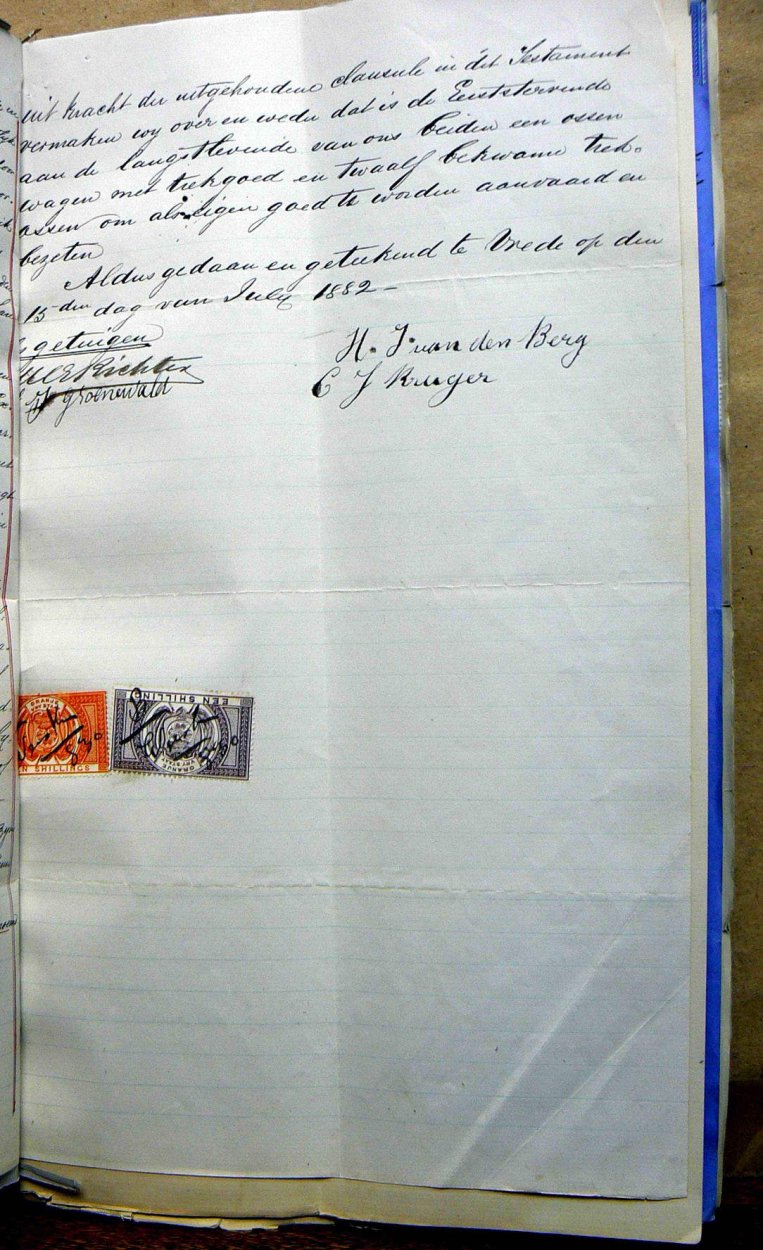 uit kracht der uitgehoudene clausule in dit Testament
vermaken wy over en weder dat is de Eerststervende
aan de langstlevende van ons beiden een ossen
wagen met trekgoed en twaalf bekwame trek-
ossen om als eigen goed te worden aanvaard en
bezeten
Aldus gedaan en geteekend te Vrede op den
15den dag van July 1882 –
getuigen
H. J van den Berg
Richter
C J Kruger
Groenewald
EEN SHILLING
ORANJE
VRY STAAT
ORANJE
N SHILLINGS